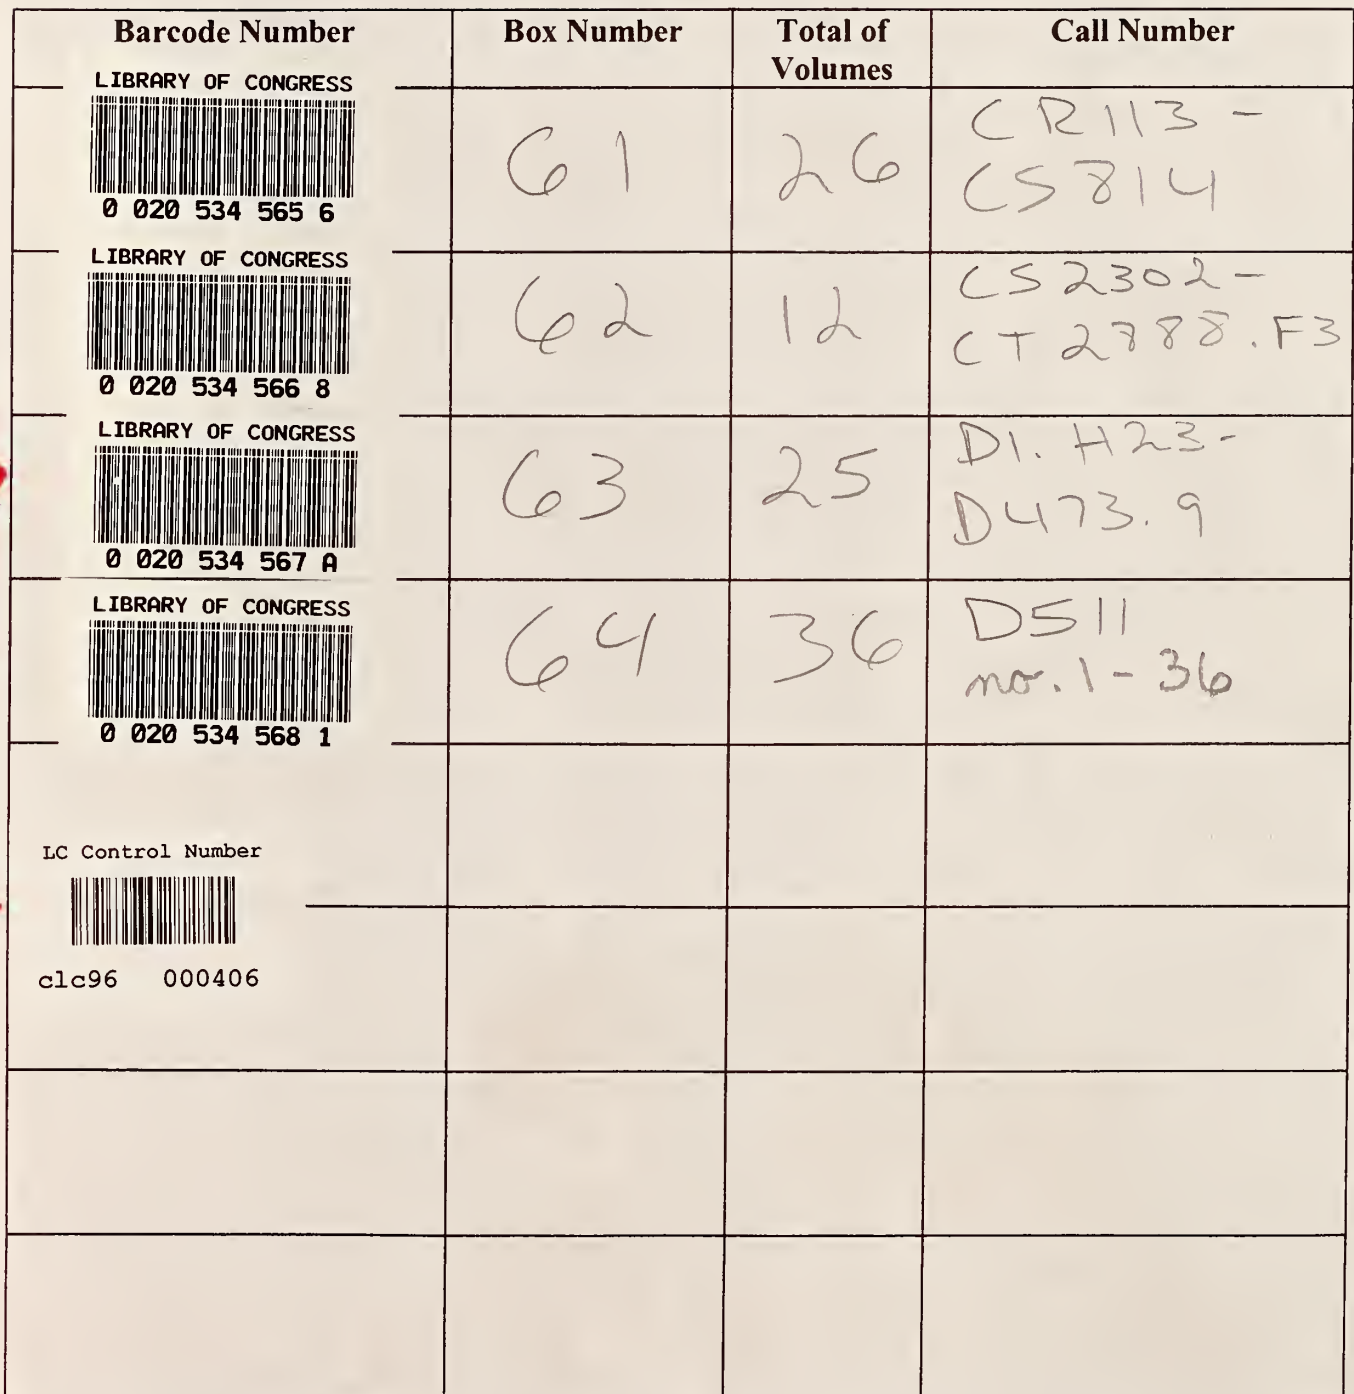 Barcode Number Box Number Total of Volumes Call Number
LIBRARY OF CONGRESS
0 020 534 565 6
61
26
CR113 -
CS814
LIBRARY OF CONGRESS
0 020 534 566 8
62
12
CS2302-
CT2788.F3
LIBRARY OF CONGRESS
0 020 534 567 A
63
25
D1.H23-
D473.9
LIBRARY OF CONGRESS
0 020 534 568 1
64
36
D511
no. 1 - 36
LC Control Number
clc96 000406